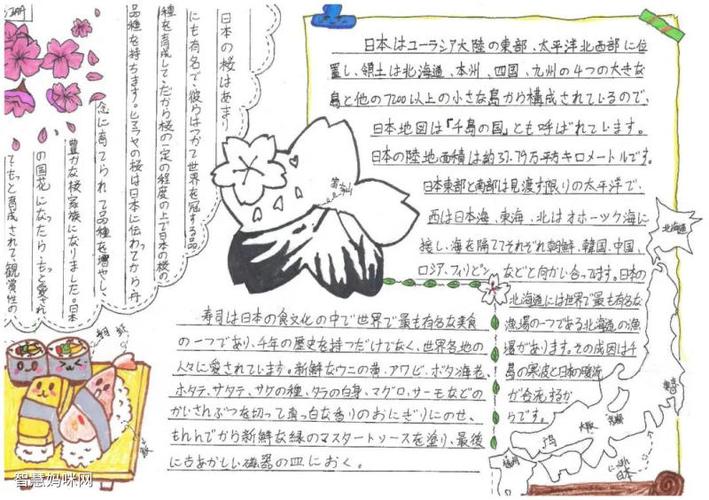 日本はユーラシア大陸の東部、太平洋北西部に位
置し、領土は北海道、本州、四国、九州の4つの大きな
島と他の7200以上の小さな島から構成されているので、
日本地図は『千島の国』とも呼ばれています。
日本の陸地面積は約37.79万平方キロメートルです。
日本東部と南部は見渡す限りの太平洋で、
西は日本海、東海、北はオホーツク海に
接し、海を隔ててそれぞれ朝鮮、韓国、中国、
ロシア、フィリピンなどと向かい合ってます。日本の
北海道には世界で最も有名な
漁場の一つである北海道の漁
場があります。その成因は千
島の寒波と日本の暖流
が合流するか
らです。
北海道
日本の桜はあまり
にも有名で、彼らはかつて世界を冠する品
種を育成して、だから桜の一定の程度の上で日本の桜の
品種を持ちます。ヒマラヤの桜は日本に伝わってから丹
念に育てられて品種を増やし、
豊かな桜家族になりました。日本
の国花になったらもっと愛され
て、もっと育成されて、観賞性の
富士山
寿司は日本の食文化の中で世界で最も有名な美食
の一つであり、千年の歴史を持つだけでなく、世界各地の
人々に愛されています。新鮮なウニの黄、アワビ、ボタン海老、
ホタテ、サタテ、サケの種、タラの白身、マグロ、サーモなどの
かいさんぶつを切って真っ白な香りのおにぎりにのせ、
もんんでから新鮮な緑のマスタートソースを塗り、最後
に古めかしい磁器の皿におく。
東京
京都
大阪
福岡
日本
智慧妈咪网